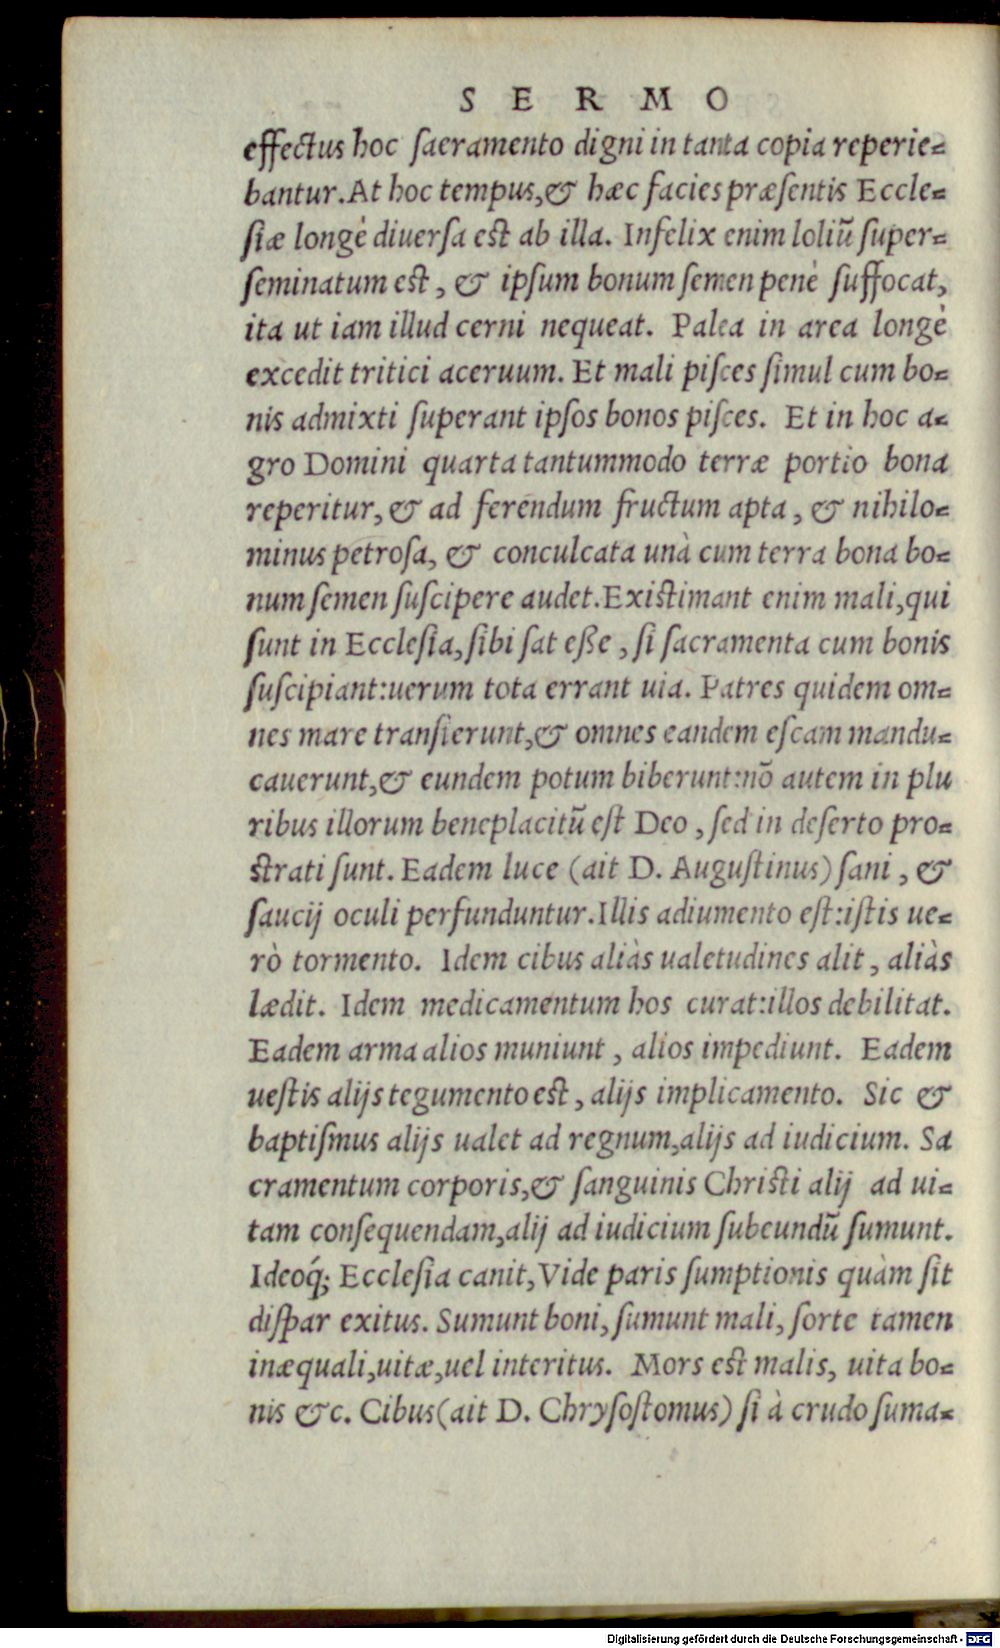 S E R M O
effectus hoc saeramento digni in tanta copia reperie=
bantur. At hoc tempus, & hæc facies præsentis Eccle=
siæ longè diuersa est ab illa. Infelix enim loliũ super=
seminatum est, & ipsum bonum semen penè suffocat,
ita ut iam illud cerni nequeat. Palea in area longè
excedit tritici aceruum. Et mali pisces simul cum bo=
nis admixti superant ipsos bonos pisces. Et in hoc a=
gro Domini quarta tantummodo terræ portio bona
reperitur, & ad ferendum fructum apta, & nihilo=
minus petrosa, & conculcata unà cum terra bona bo=
num semen suscipere audet. Existimant enim mali, qui
sunt in Ecclesia, sibi sat eße, si sacramenta cum bonis
suscipiant: uerum tota errant uia. Patres quidem om=
nes mare transierunt, & omnes eandem escam mandu=
cauerunt, & eundem potum biberunt: nõ autem in plu
ribus illorum beneplacitũ est Deo, sed in deserto pro=
strati sunt. Eadem luce (ait D. Augustinus) sani, &
saucij oculi perfunduntur. Illis adiumento est: istis ue=
rò tormento. Idem cibus aliàs ualetudines alit, aliàs
lædit. Idem medicamentum hos curat: illos debilitat.
Eadem arma alios muniunt, alios impediunt. Eadem
uestis alijs tegumento est, alijs implicamento. Sic &
baptismus alijs ualet ad regnum, alijs ad iudicium. Sa
cramentum corporis, & sanguinis Christi alij ad ui=
tam consequendam, alij ad iudicium subeundũ sumunt.
Ideoq́; Ecclesia canit, Vide paris sumptionis quàm sit
dispar exitus. Sumunt boni, sumunt mali, sorte tamen
inæquali, uitæ, uel interitus. Mors est malis, uita bo=
nis &c. Cibus (ait D. Chrysostomus) si à crudo suma=
Digitalisierung gefördert durch die Deutsche Forschungsgemeinschaft - DFG